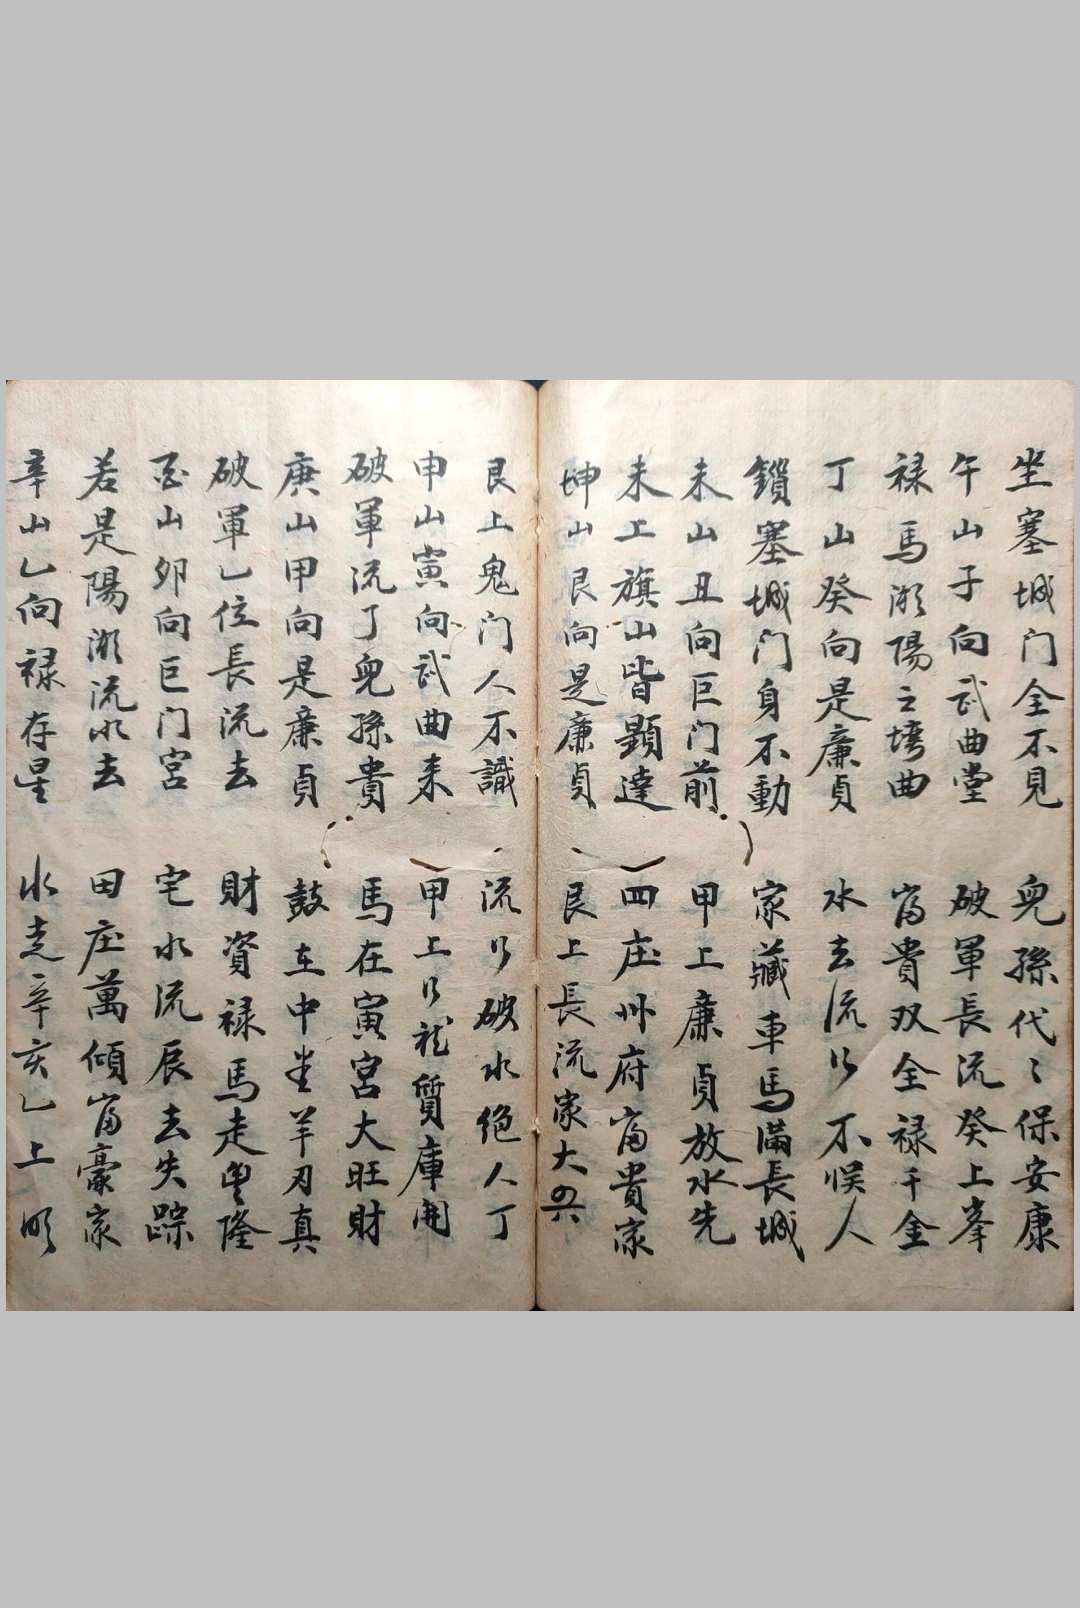 坐塞城门全不見 兒孫代〻保安康
午山子向武曲堂 破軍長流癸上峯
禄馬浙陽之塆曲 富貴双全禄千金
丁山癸向是廉貞 水去流 不悮人
鎖塞城门身不動 家藏車馬滿長城
未山丑向巨门前 甲上廉貞放水先
未上旗山皆顕達 四庄州府富貴家
坤山艮向是廉貞 艮上長流家大
艮上鬼门人不識 流 破水絶人丁
申山寅向武曲来 甲上 龍質庫開
破軍流了兒孫貴 馬在寅宮大旺財
庚山甲向是廉貞 鼓在中坐羊刃真
破軍乙位長流去 財資禄馬走 隆
酉山卯向巨门宮 宅水流辰去失踪
若是陽浙流水去 田庄萬傾富豪家
辛山乙向禄存星 水走辛亥乙上